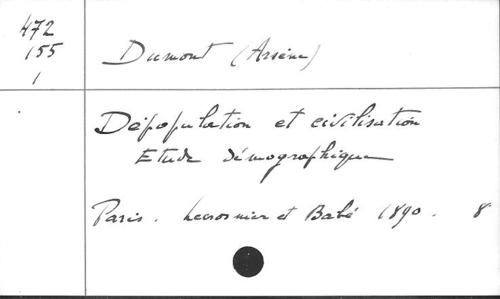 472
155
1
Dumont (Arsène)
Dépopulation et civilisation
Etude démographique
Paris. Lecrosnier et Babé 1890. 8